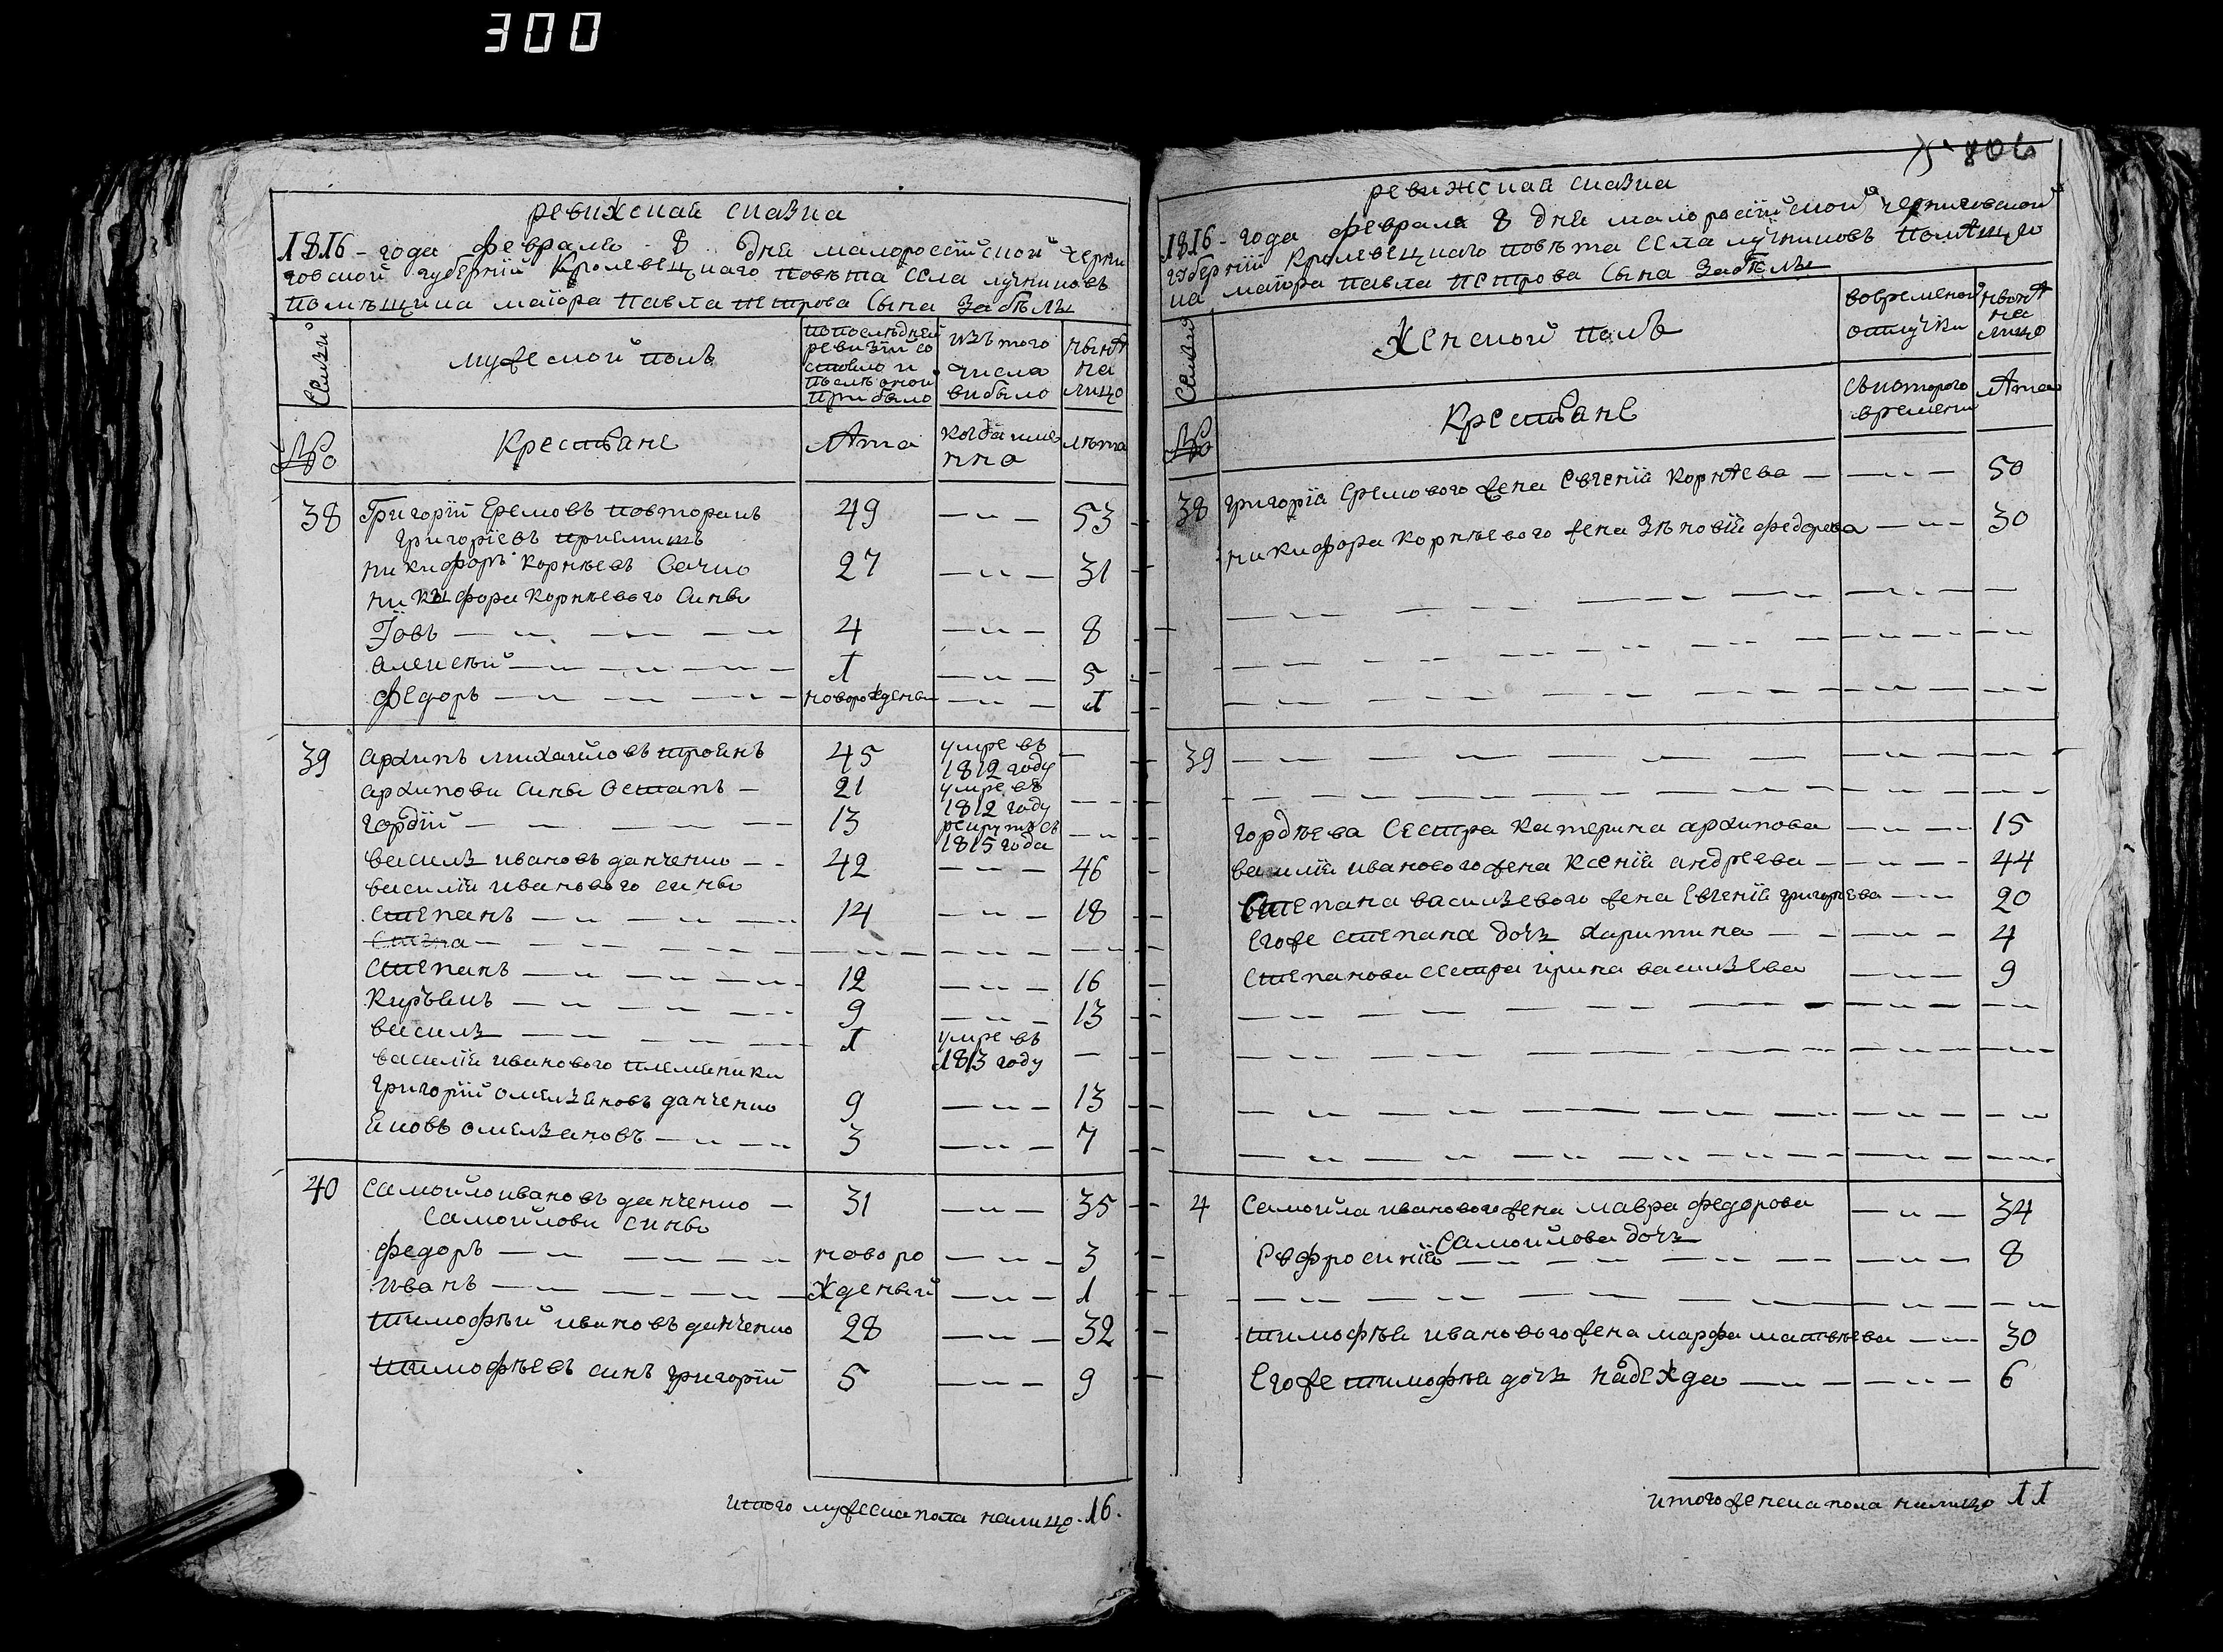 300
ревижская сказка
1816 - года февраля 8 дня малоросійской черни
говской губерній Кролевецкаго повѣта села лучниковъ
помѣщика маіора павла петрова сына забѣлы
семьи
мужеской полъ
попослѣдней
ревизіи со
стояло и
послѣ оной
прибыло
изъ того
числа
вибыло
нынѣ
на
лицо
№
Крестьяне
лѣта
когда име
нно
лѣта
38 Григорій Еремовъ 49 — „ — 53
григоріевъ приемишъ
никифоръ корнѣевъ 27 — „ — 31
никифора корнѣевого сины
Іовъ — „ — 4 — „ — 8
алексѣй — „ — 1 — „ — 5
федоръ — „ — новорожденый — „ — 1
39 архипъ михайловъ 45 умре въ —
1812 году
архипови сины остапъ — 21 умре въ
1812 году — —
гордій — 13 рекрутъ съ — „
1815 года
василь ивановъ данченко — 42 — „ — 46
василія иванового сины
степанъ — „ — 14 — „ — 18
степанъ — „ — 12 — „ — 16
9 — „ — 13
василь — „ — 1 умре въ —
1813 году
василія иванового племеники
григорій омеляновъ данченко 9 — „ — 13
яковъ омеляновъ — „ — 3 — „ — 7
40 самойло ивановъ данченко — 31 — „ — 35
самойлови сины
федоръ — „ — новоро — „ — 3
иванъ — „ — жденый — „ — 1
тимофѣй ивановъ данченко 28 — „ — 32
тимофѣевъ синъ григорій 5 — „ — 9
итого мужеска пола налицо. 16.
806
ревижская сказка
1816 - года февраля 8 дня малоросійской черниговской
губерній кролевецкаго повѣта села лучниковъ помѣщи
ка маіора павла петрова сына забѣлы
семьи
Женской полъ
вовременой
отлучки
нынѣ
на
лицо
№
Крестьяне
съкоторого
времени
лѣта
38 григорія еремового жена евгенія корнѣева — — „ — 50
никифора корнѣевого жена зѣновія федорова — „ — 30
39 — — — —
гордѣева сестра катерина архипова — „ — 15
василія иванового жена ксенія андреева — „ — 44
степана василевого жена евгенія григорьева — „ — 20
егоже степана дочь харитина — — „ — 4
степанова сестра ирина василева — „ — 9
4 самойла иванового жена мавра федорова — „ — 34
самойлова дочь
ефросинія — „ — 8
тимофѣя иванового жена марфа матвѣева — „ — 30
егоже тимофѣя дочь надежда — „ — 6
итого женска пола налицо 11